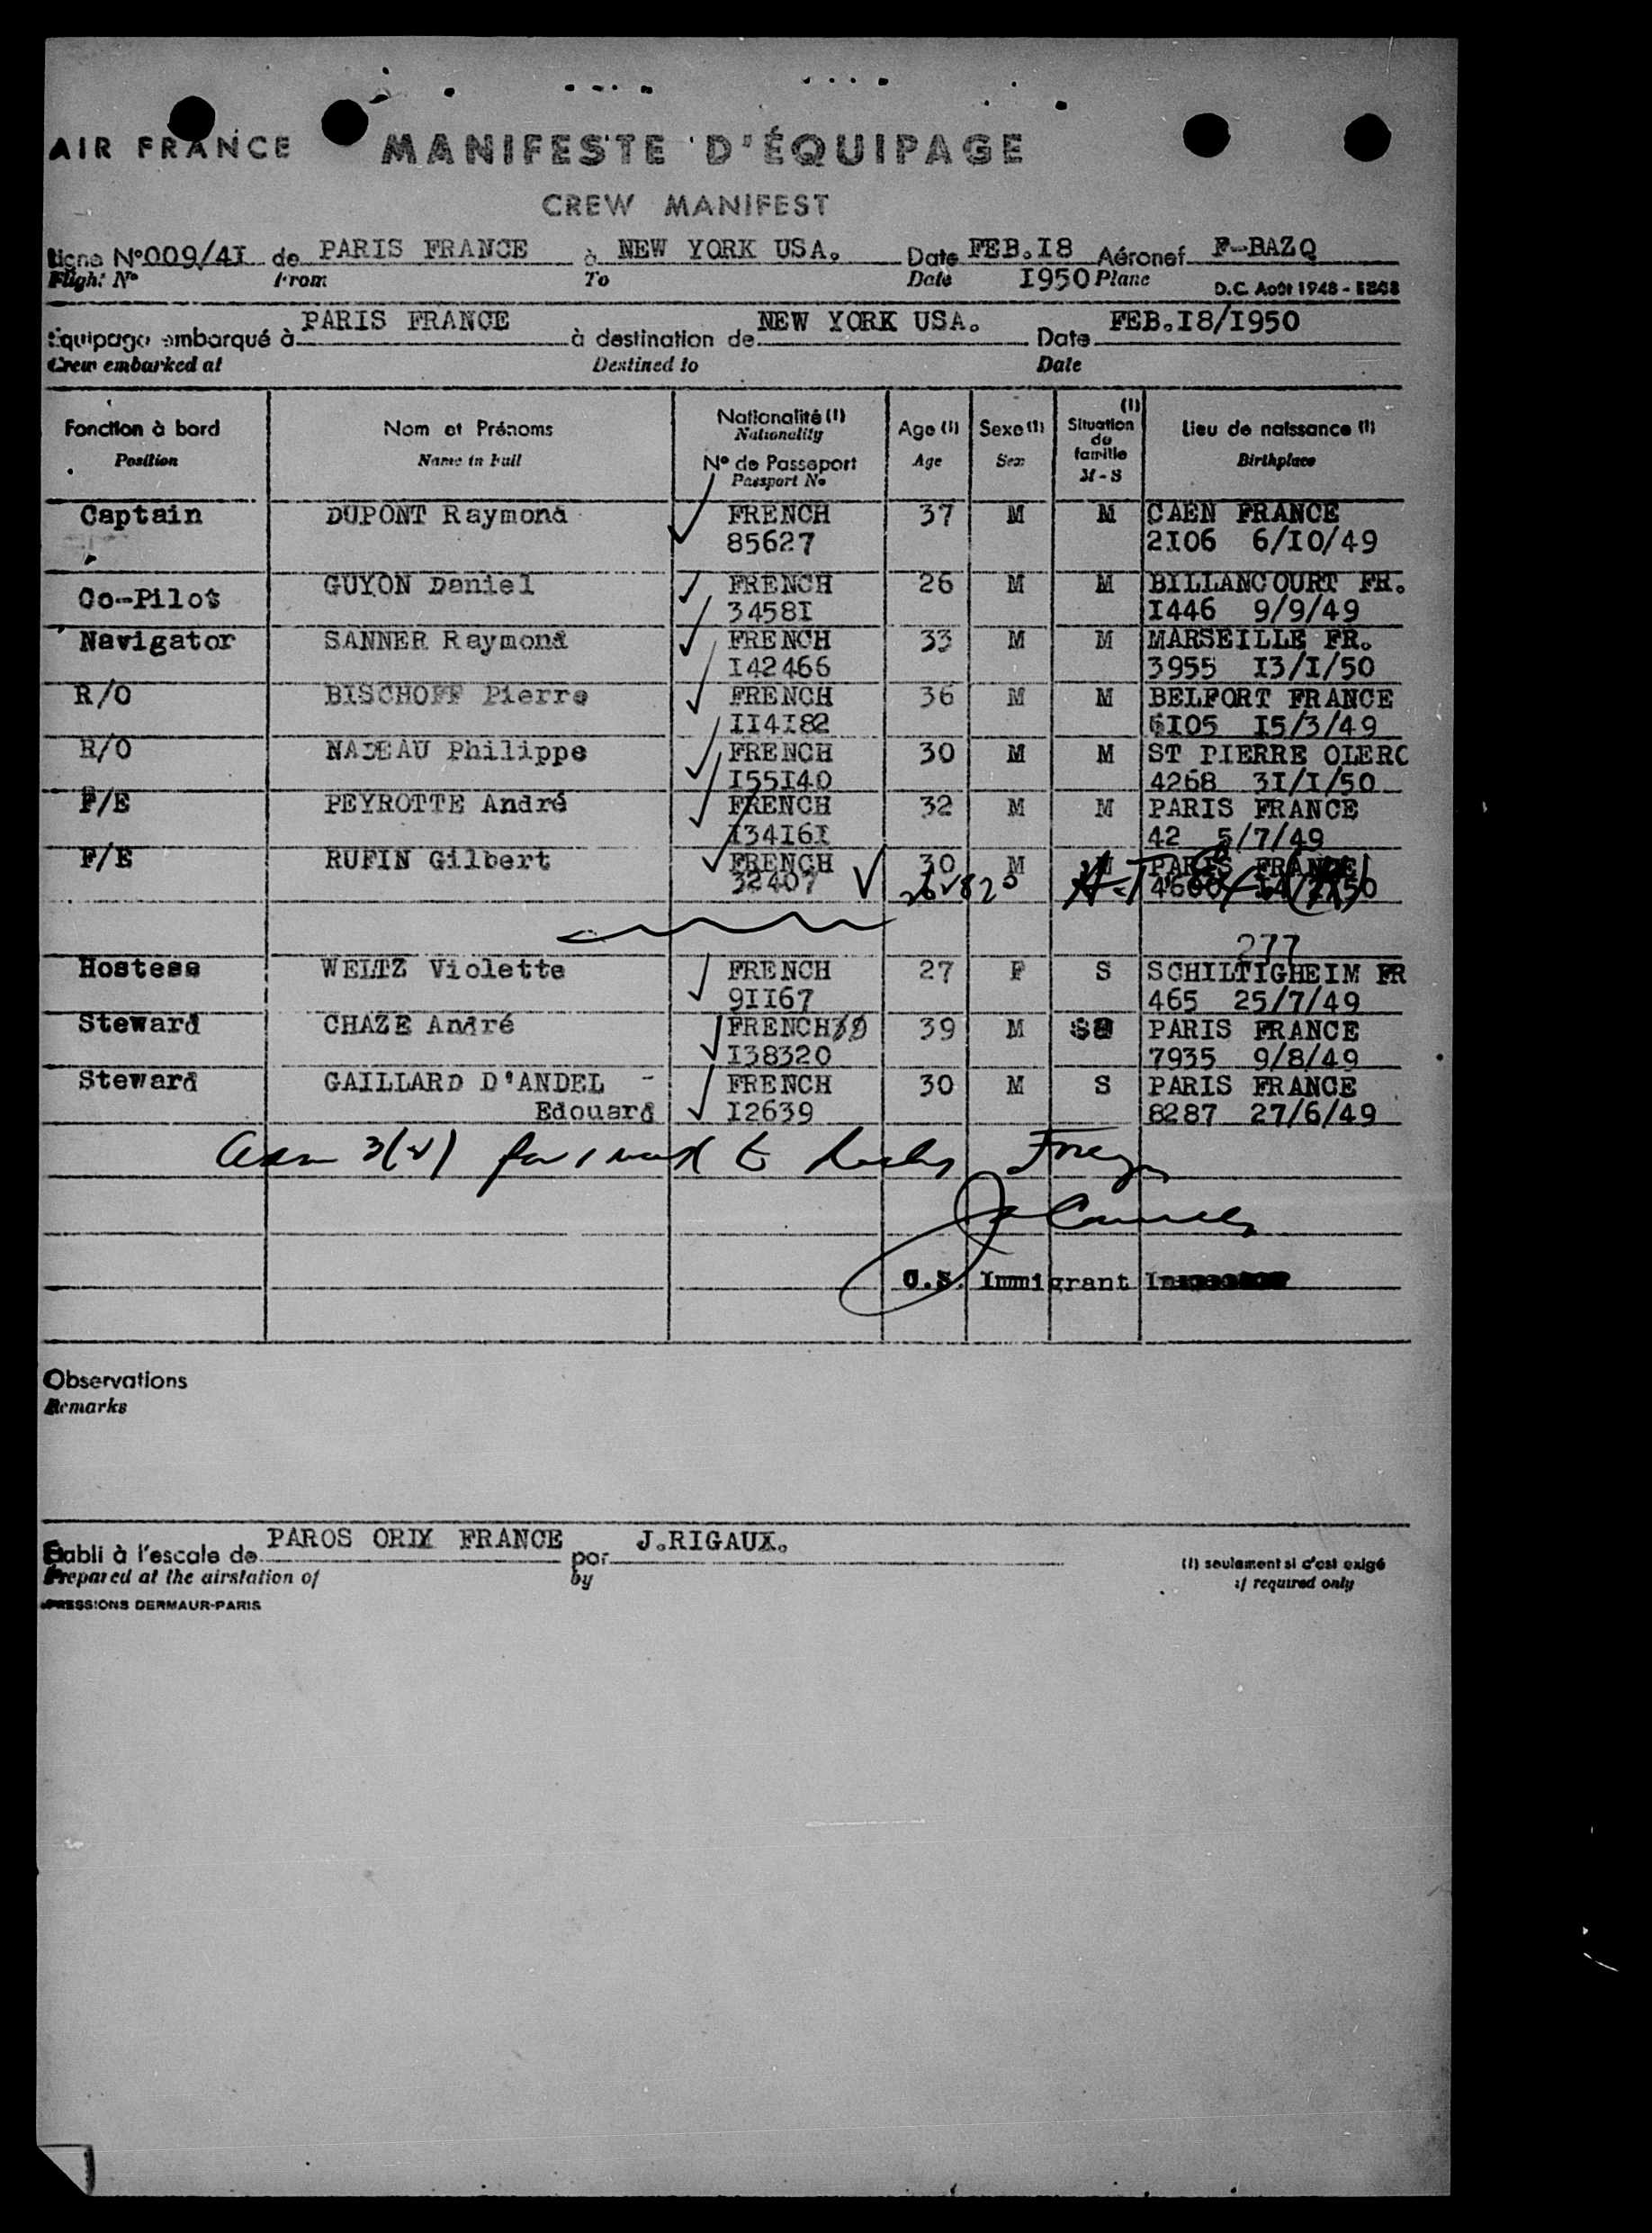 AIR FRANCE MANIFESTE D'ÉQUIPAGE
CREW MANIFEST
Ligne N° 009/4I de PARIS FRANCE à NEW YORK USA. Date FEB.I8 Aéronef F-BAZQ
Flight N° From To Date I950 Plane D.C. Août 1948 -
Équipage embarqué à PARIS FRANCE à destination de NEW YORK USA. Date FEB.I8/I950
Crew embarked at Destined to Date
Fonction à bord Nom et Prénoms Nationalité (1) Age (1) Sexe (1) (1) Situation de famille Lieu de naissance (1)
Position Name in Full Nationality Age Sex M - S Birthplace
N° de Passeport
Passport N°
Captain DUPONT Raymond FRENCH 37 M M CAEN FRANCE
85627 2I06 6/I0/49
Co-Pilot GUYON Daniel FRENCH 26 M M BILLANCOURT FR.
3458I I446 9/9/49
Navigator SANNER Raymond FRENCH 33 M M MARSEILLE FR.
I42466 3955 I3/I/50
R/O BISCHOFF Pierre FRENCH 36 M M BELFORT FRANCE
II4I82 6I05 I5/3/49
R/O NADEAU Philippe FRENCH 30 M M ST PIERRE OLERC
I55I40 4268 3I/I/50
F/E PEYROTTE André FRENCH 32 M M PARIS FRANCE
I34I6I 42 5/7/49
F/E RUFIN Gilbert FRENCH 30 M M PARIS FRANCE
32407
277
Hostess WELTZ Violette FRENCH 27 F S SCHILTIGHEIM FR
9II67 465 25/7/49
Steward CHAZE André FRENCH 39 M PARIS FRANCE
I38320 7935 9/8/49
Steward GAILLARD D'ANDEL - FRENCH 30 M S PARIS FRANCE
Edouard I2639 8287 27/6/49
U.S. Immigrant
Observations
Remarks
Établi à l'escale de PAROS ORIY FRANCE par J.RIGAUX.
Prepared at the airstation of by
(1) seulement si c'est exigé
if required only
PRESSIONS DERMAUR-PARIS